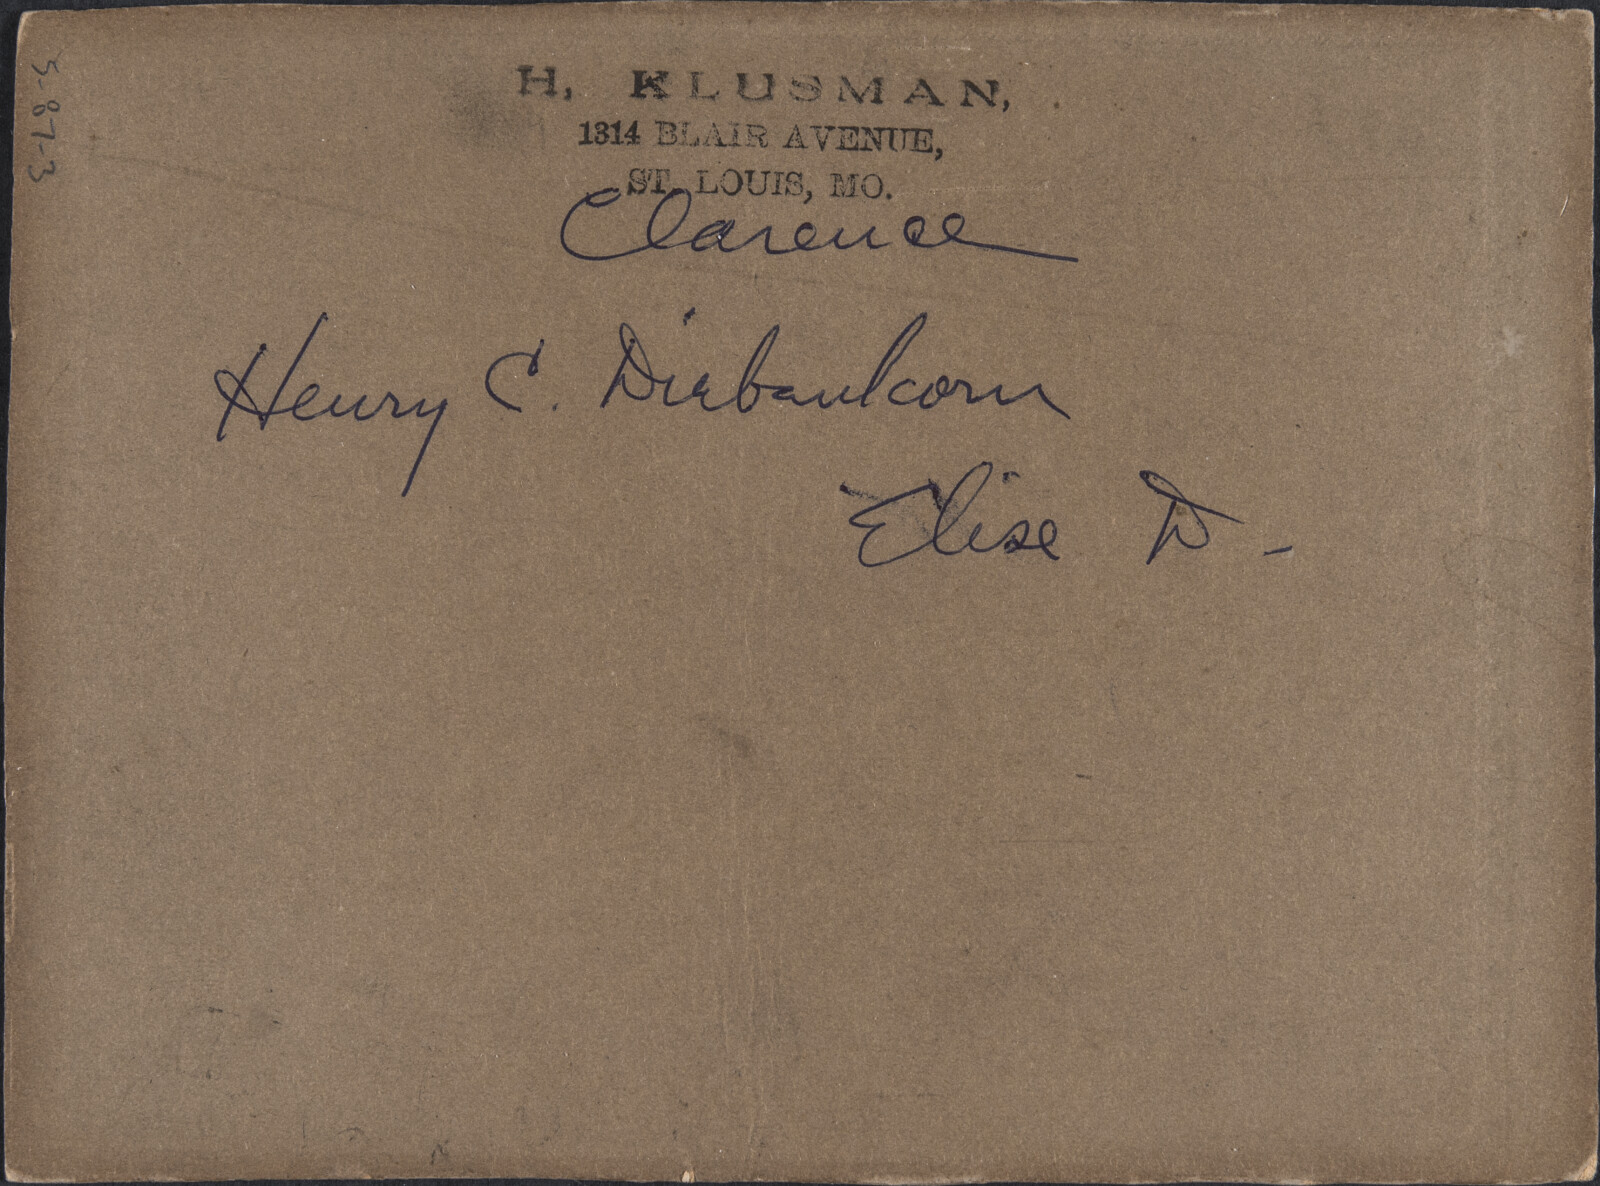 H. KLUSMAN,
1314 BLAIR AVENUE,
ST. LOUIS, MO.
Clarence
Henry C. Dirbankorn
Elise D -
S-87-3